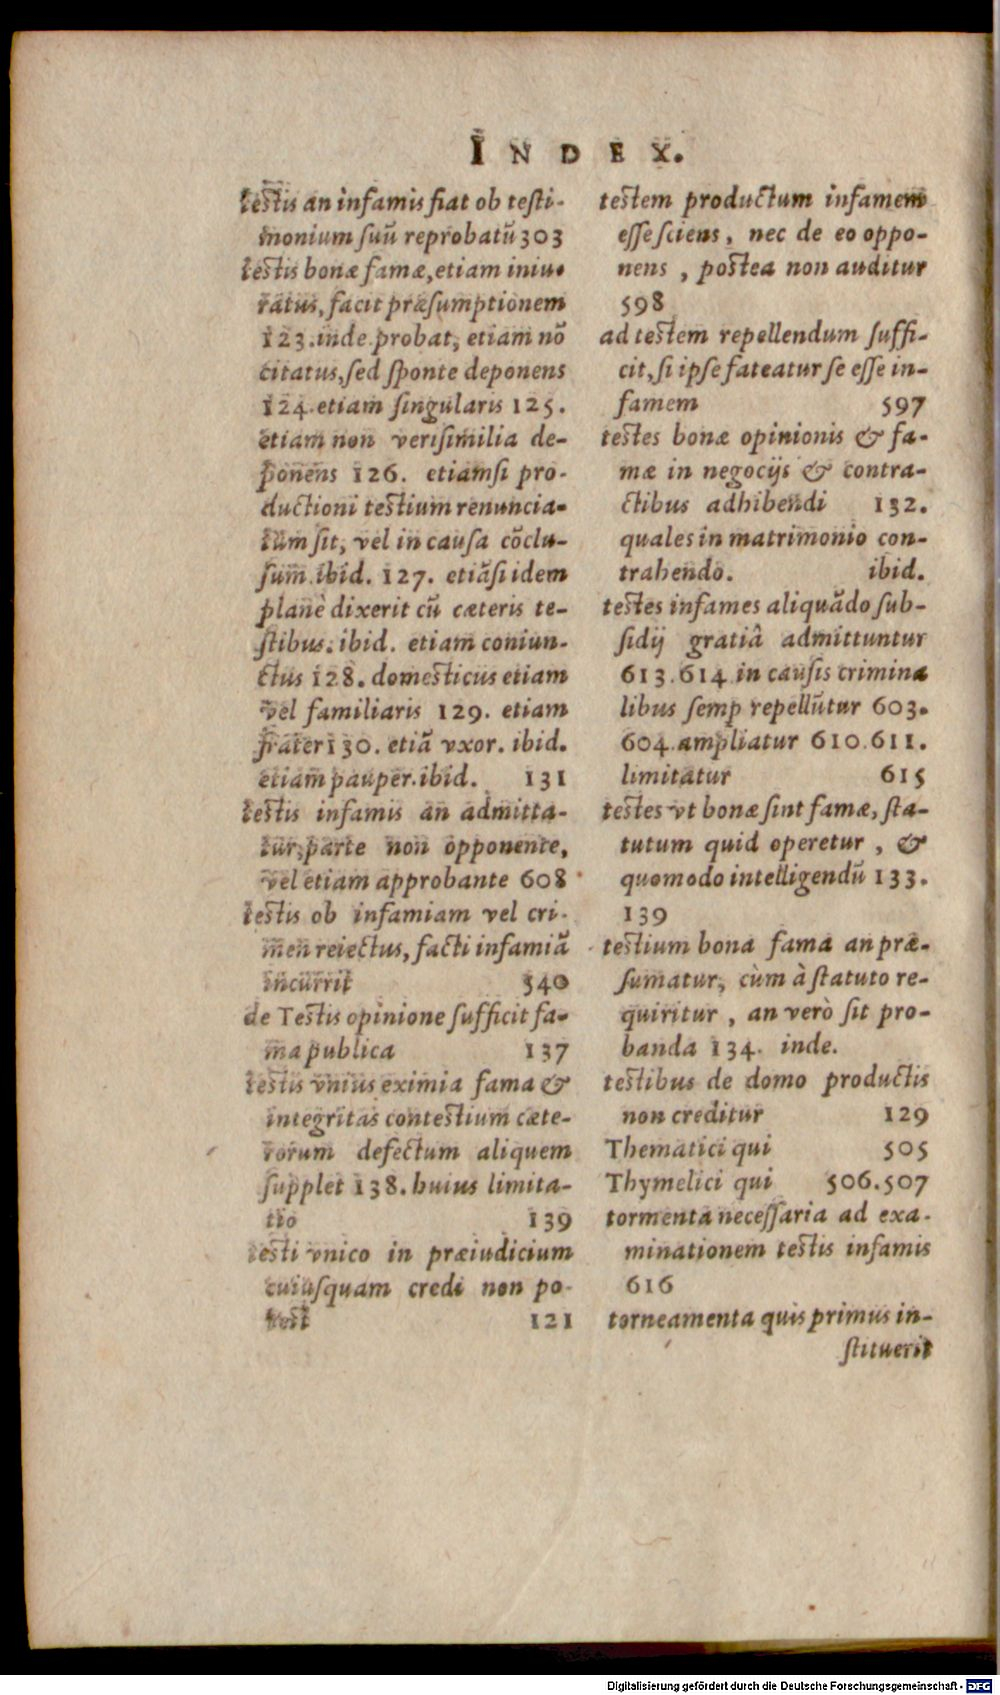 INDEX.
testis an infamis fiat ob testi-
monium suũ reprobatũ 303
testis bonæ famæ, etiam iniu-
ratus, facit præsumptionem
123. inde probat, etiam nõ
citatus, sed sponte deponens
124. etiam singularis 125.
etiam non verisimilia de-
ponens 126. etiamsi pro-
ductioni testium renuncia-
tum sit, vel in causa cõclu-
sum. ibid. 127. etiãsi idem
planè dixerit cũ cæteris te-
stibus. ibid. etiam coniun-
ctus 128. domesticus etiam
vel familiaris 129. etiam
frater 130. etiã vxor. ibid.
etiam pauper. ibid. 131
testis infamis an admitta-
tur, parte non opponente,
vel etiam approbante 608
testis ob infamiam vel cri-
men reiectus, facti infamiã
incurrit 340
de Testis opinione sufficit fa-
ma publica 137
testis vnius eximia fama &
integritas contestium cæte-
rorum defectum aliquem
supplet 138. huius limita-
tio 139
testi vnico in præiudicium
cuiusquam credi non po-
test 121
testem productum infamem
esse sciens, nec de eo oppo-
nens, postea non auditur
598
ad testem repellendum suffi-
cit, si ipse fateatur se esse in-
famem 597
testes bonæ opinionis & fa-
mæ in negocijs & contra-
ctibus adhibendi 132.
quales in matrimonio con-
trahendo. ibid.
testes infames aliquãdo sub-
sidij gratiâ admittuntur
613.614 in causis crimina
libus semp repellũtur 603.
604. ampliatur 610.611.
limitatur 615
testes vt bonæ sint famæ, sta-
tutum quid operetur, &
quomodo intelligendũ 133.
139
testium bona fama an præ-
sumatur, cùm à statuto re-
quiritur, an verò sit pro-
banda 134. inde.
testibus de domo productis
non creditur 129
Thematici qui 505
Thymelici qui 506.507
tormenta necessaria ad exa-
minationem testis infamis
616
torneamenta quis primus in-
stituerit
Digitalisierung gefördert durch die Deutsche Forschungsgemeinschaft - DFG